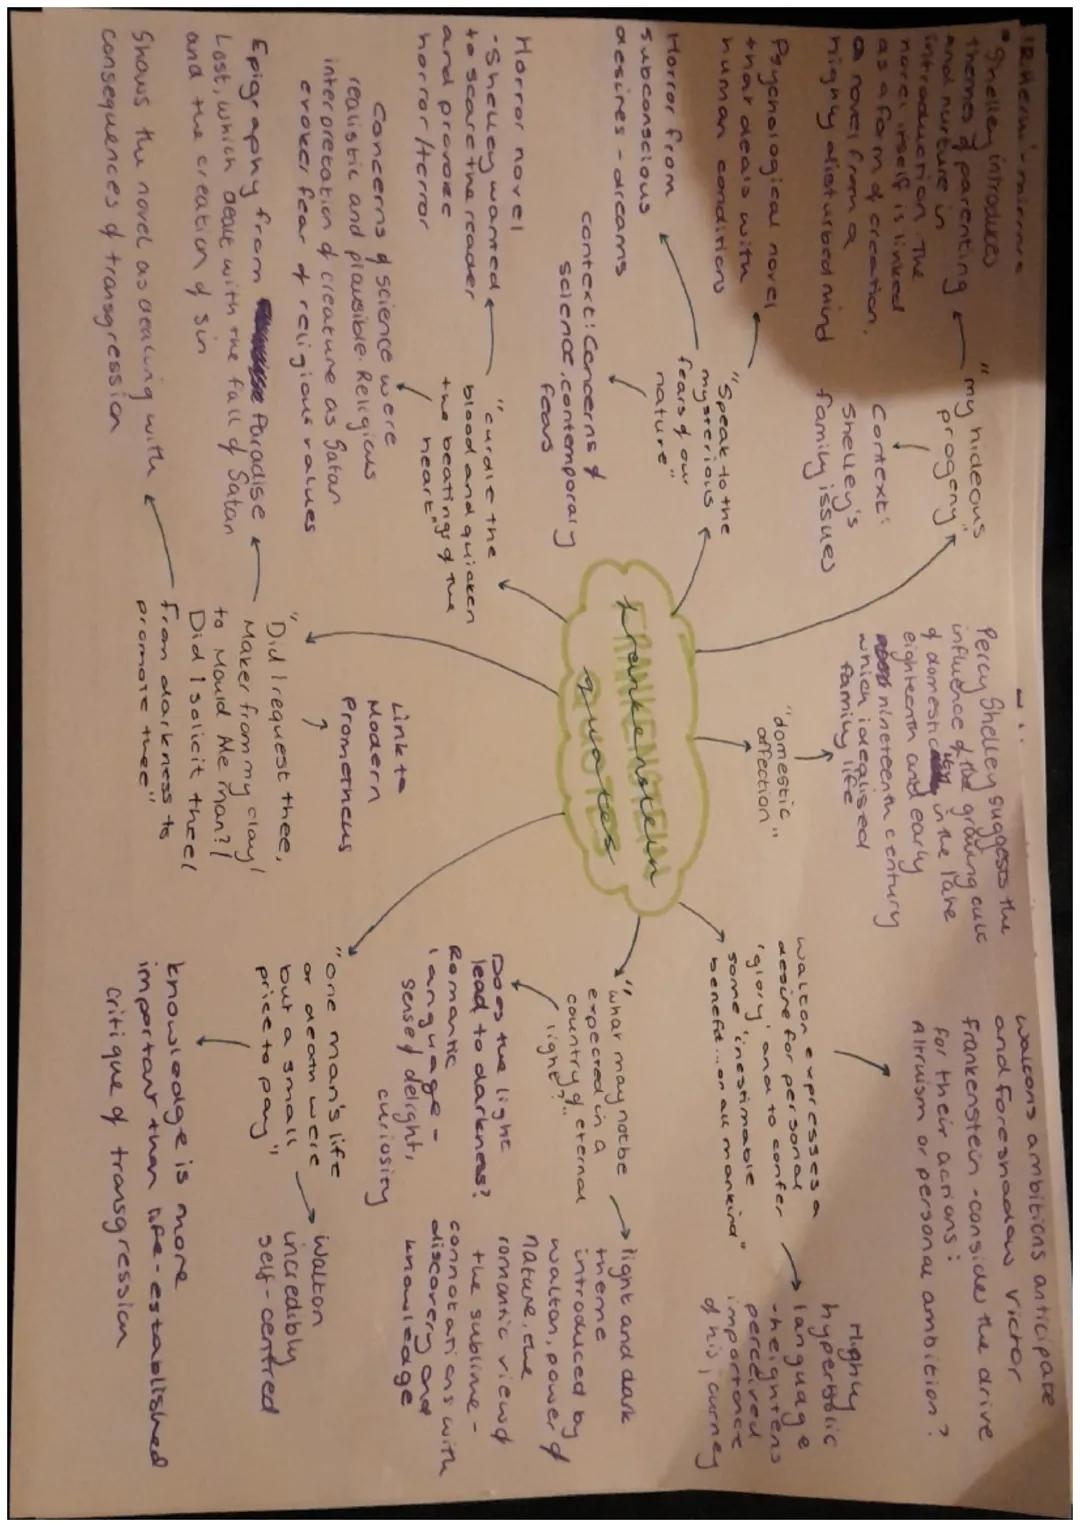 Frankenstein
quotes
"my hideous
progeny"
• Shelley introduces
themes of parenting
and nurture in
introduction. The
novel itself is linked
as a form of creation,
a novel from a
highly disturbed mind
Context:
Shelley's
family issues
"Speak to the
mysterious
fears of our
nature"
Psychological novel
that deals with
human conditions
Horror from
subconscious
desires - dreams
context: Concerns of
science, contemporary
fears
"curdle the
blood and quicken
the beatings of the
heart"
Horror novel
- Shelley wanted
to scare the reader
and provoke
horror/terror
Concerns of science were
realistic and plausible. Religious
interpretation of creature as Satan
evokes fear of religious values
"Did I request thee,
Maker from my clay/
to Mould Me man?/
Did I solicit thee/
from darkness to
promote thee"
Epigraphy from Paradise
Lost, which dealt with the fall of Satan
and the creation of sin
Shows the novel as dealing with
consequences of transgression
Link to
Modern
Prometheus
"domestic
affection"
Percy Shelley suggests the
influence of the growing cult
of domestic in the late
eighteenth and early
nineteenth century
which idealised
family life
Walton expresses a
desire for personal
'glory' and to confer
some 'inestimable
benefit...on all mankind"
Waltons ambitions anticipate
and foreshadow Victor
Frankenstein - consider the drive
for their actions:
Altruism or personal ambition?
Highly
hyperbolic
language
- heightens
perceived
importance
of his journey
"what may not be
expected in a
country of eternal
light?"
light and dark
theme
introduced by
Walton, power of
nature, the
romantic view of
the sublime -
connotations with
discovery and
knowledge
Does the light
lead to darkness?
Romantic
language -
sense of delight,
curiosity
"one man's life
or death were
but a small
price to pay"
Walton
incredibly
self-centred
knowledge is more
important than life - established
critique of transgression